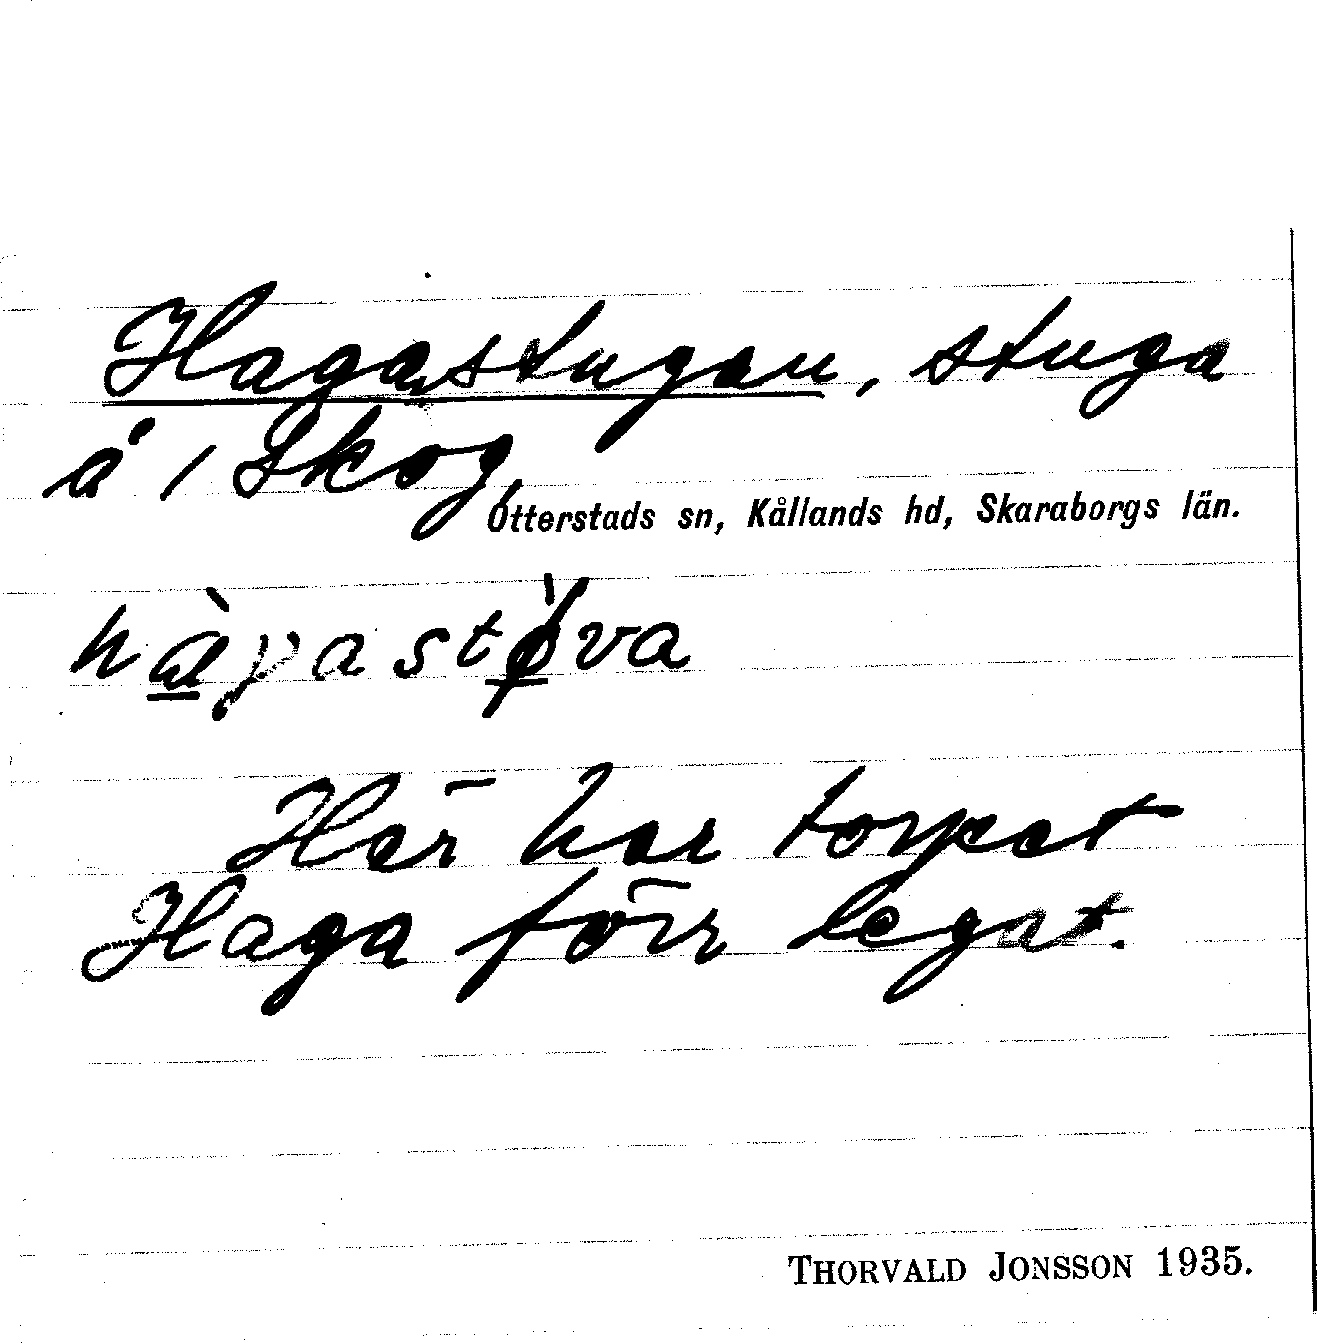 Hagastugan, stuga
å 1 Skog,
Otterstads sn, Kållands hd, Skaraborgs län.
hàɣastǿ̀va
Här har torpet
Haga förr legat.
THORVALD JONSSON 1935.